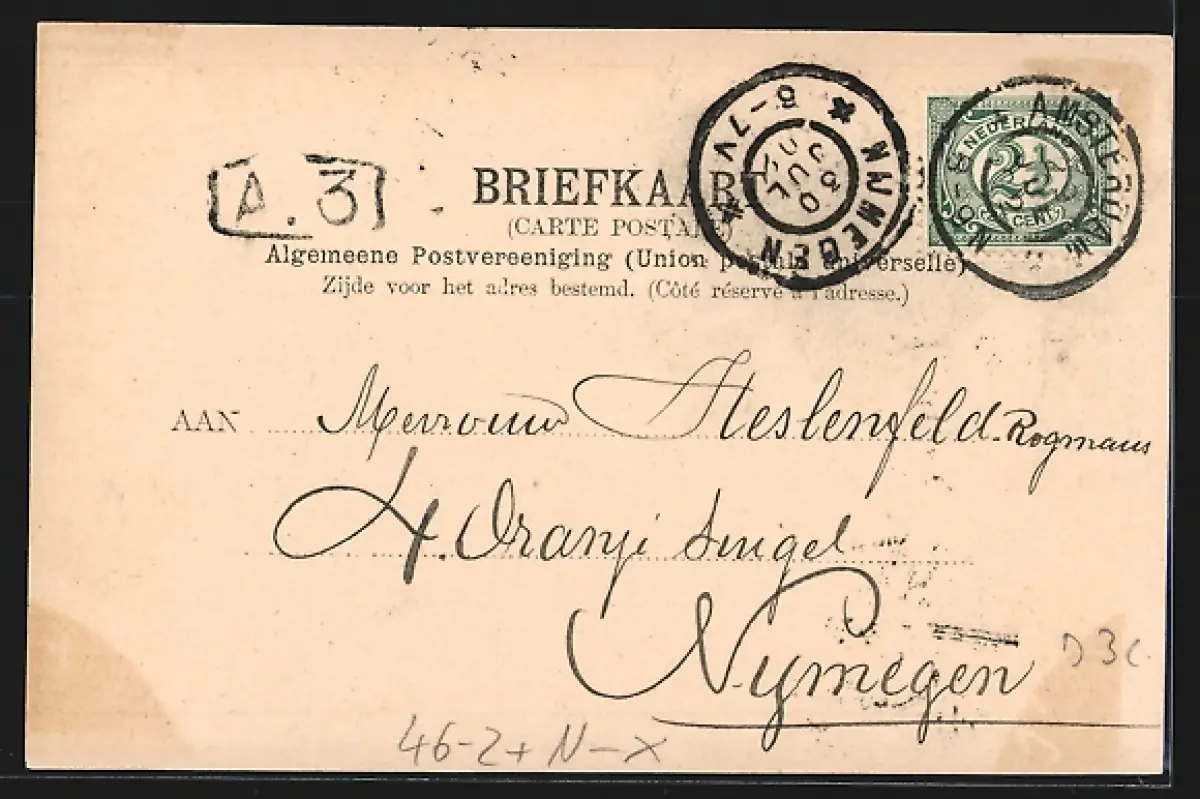 A. 3
BRIEFKAART
(CARTE POSTALE)
Algemeene Postvereeniging (Union postale universelle)
Zijde voor het adres bestemd. (Côté réservé à l'adresse.)
NIJMEGEN
5-7V
30
JUL
NEDERLAND
2½
CENT
AMSTERDAM
AAN Mevrouw Heslenfeld-Rogmans
4. Oranje Singel
Nymegen
D3C
46-2+N-X